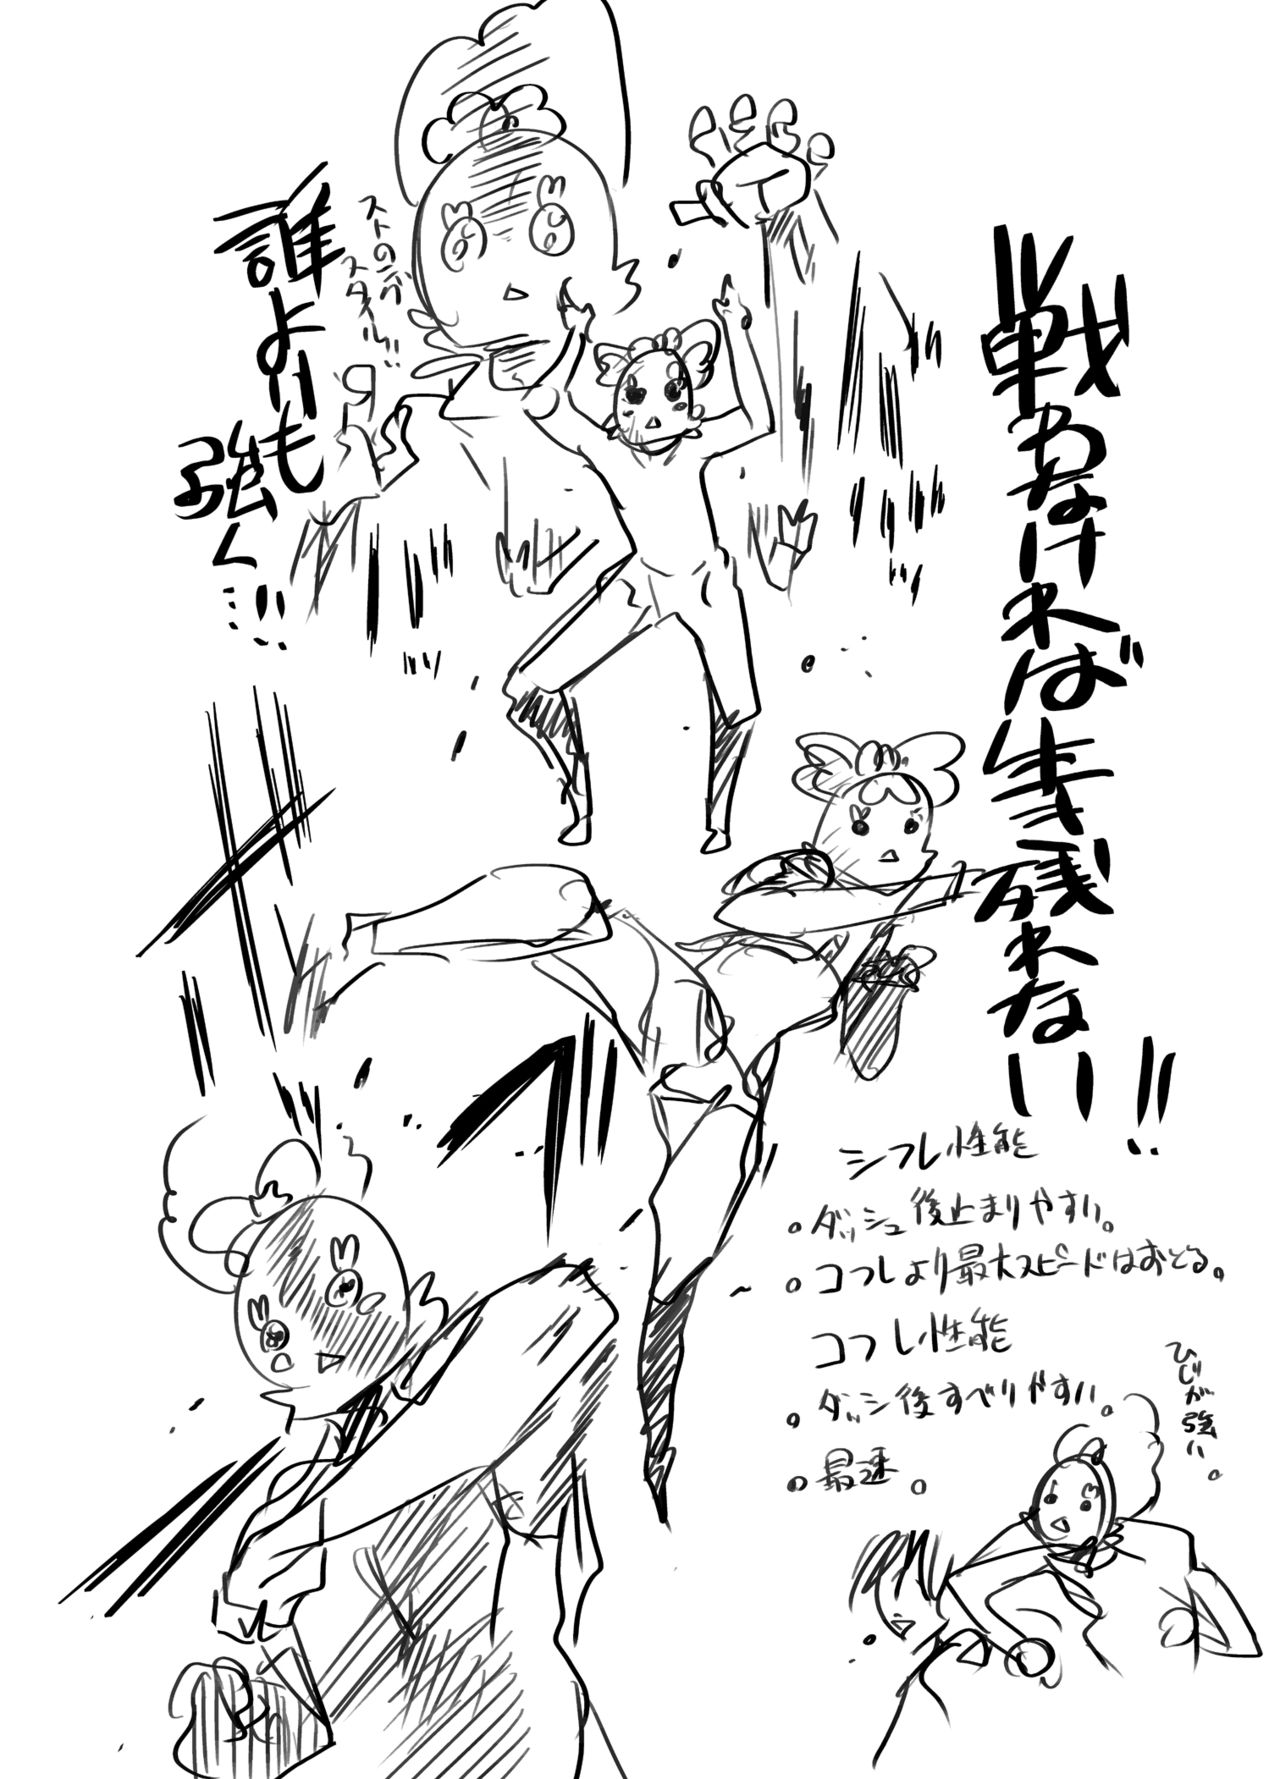 戦わなければ生き残れない!!
誰よりも
強く…!!
シフレ性能
。ダッシュ後止まりやすい。
。コフレより最大スピードはおとる。
コフレ性能
。ダッシュ後すべりやすい。
。最速。
ひじが強い。